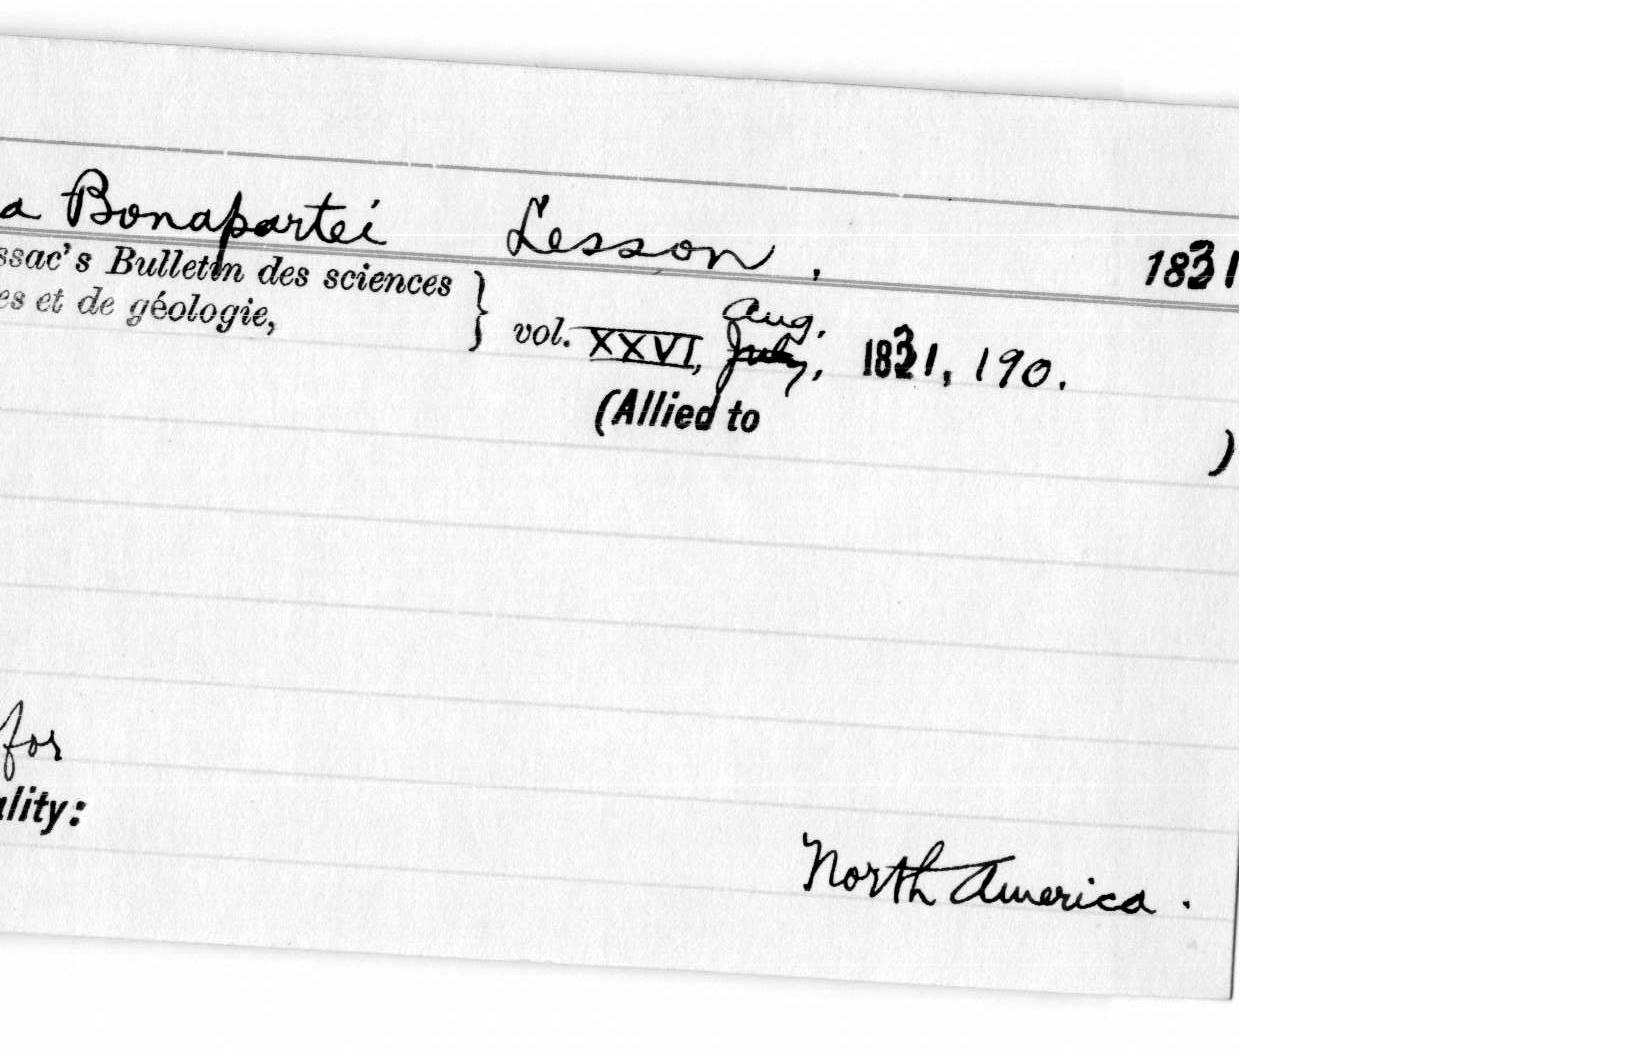 a Bonapartei Lesson. 1831
ssac's Bulletin des sciences
es et de géologie, } vol. XXVI, Aug. July, 1831, 190.
(Allied to )
for
ality:
North America.